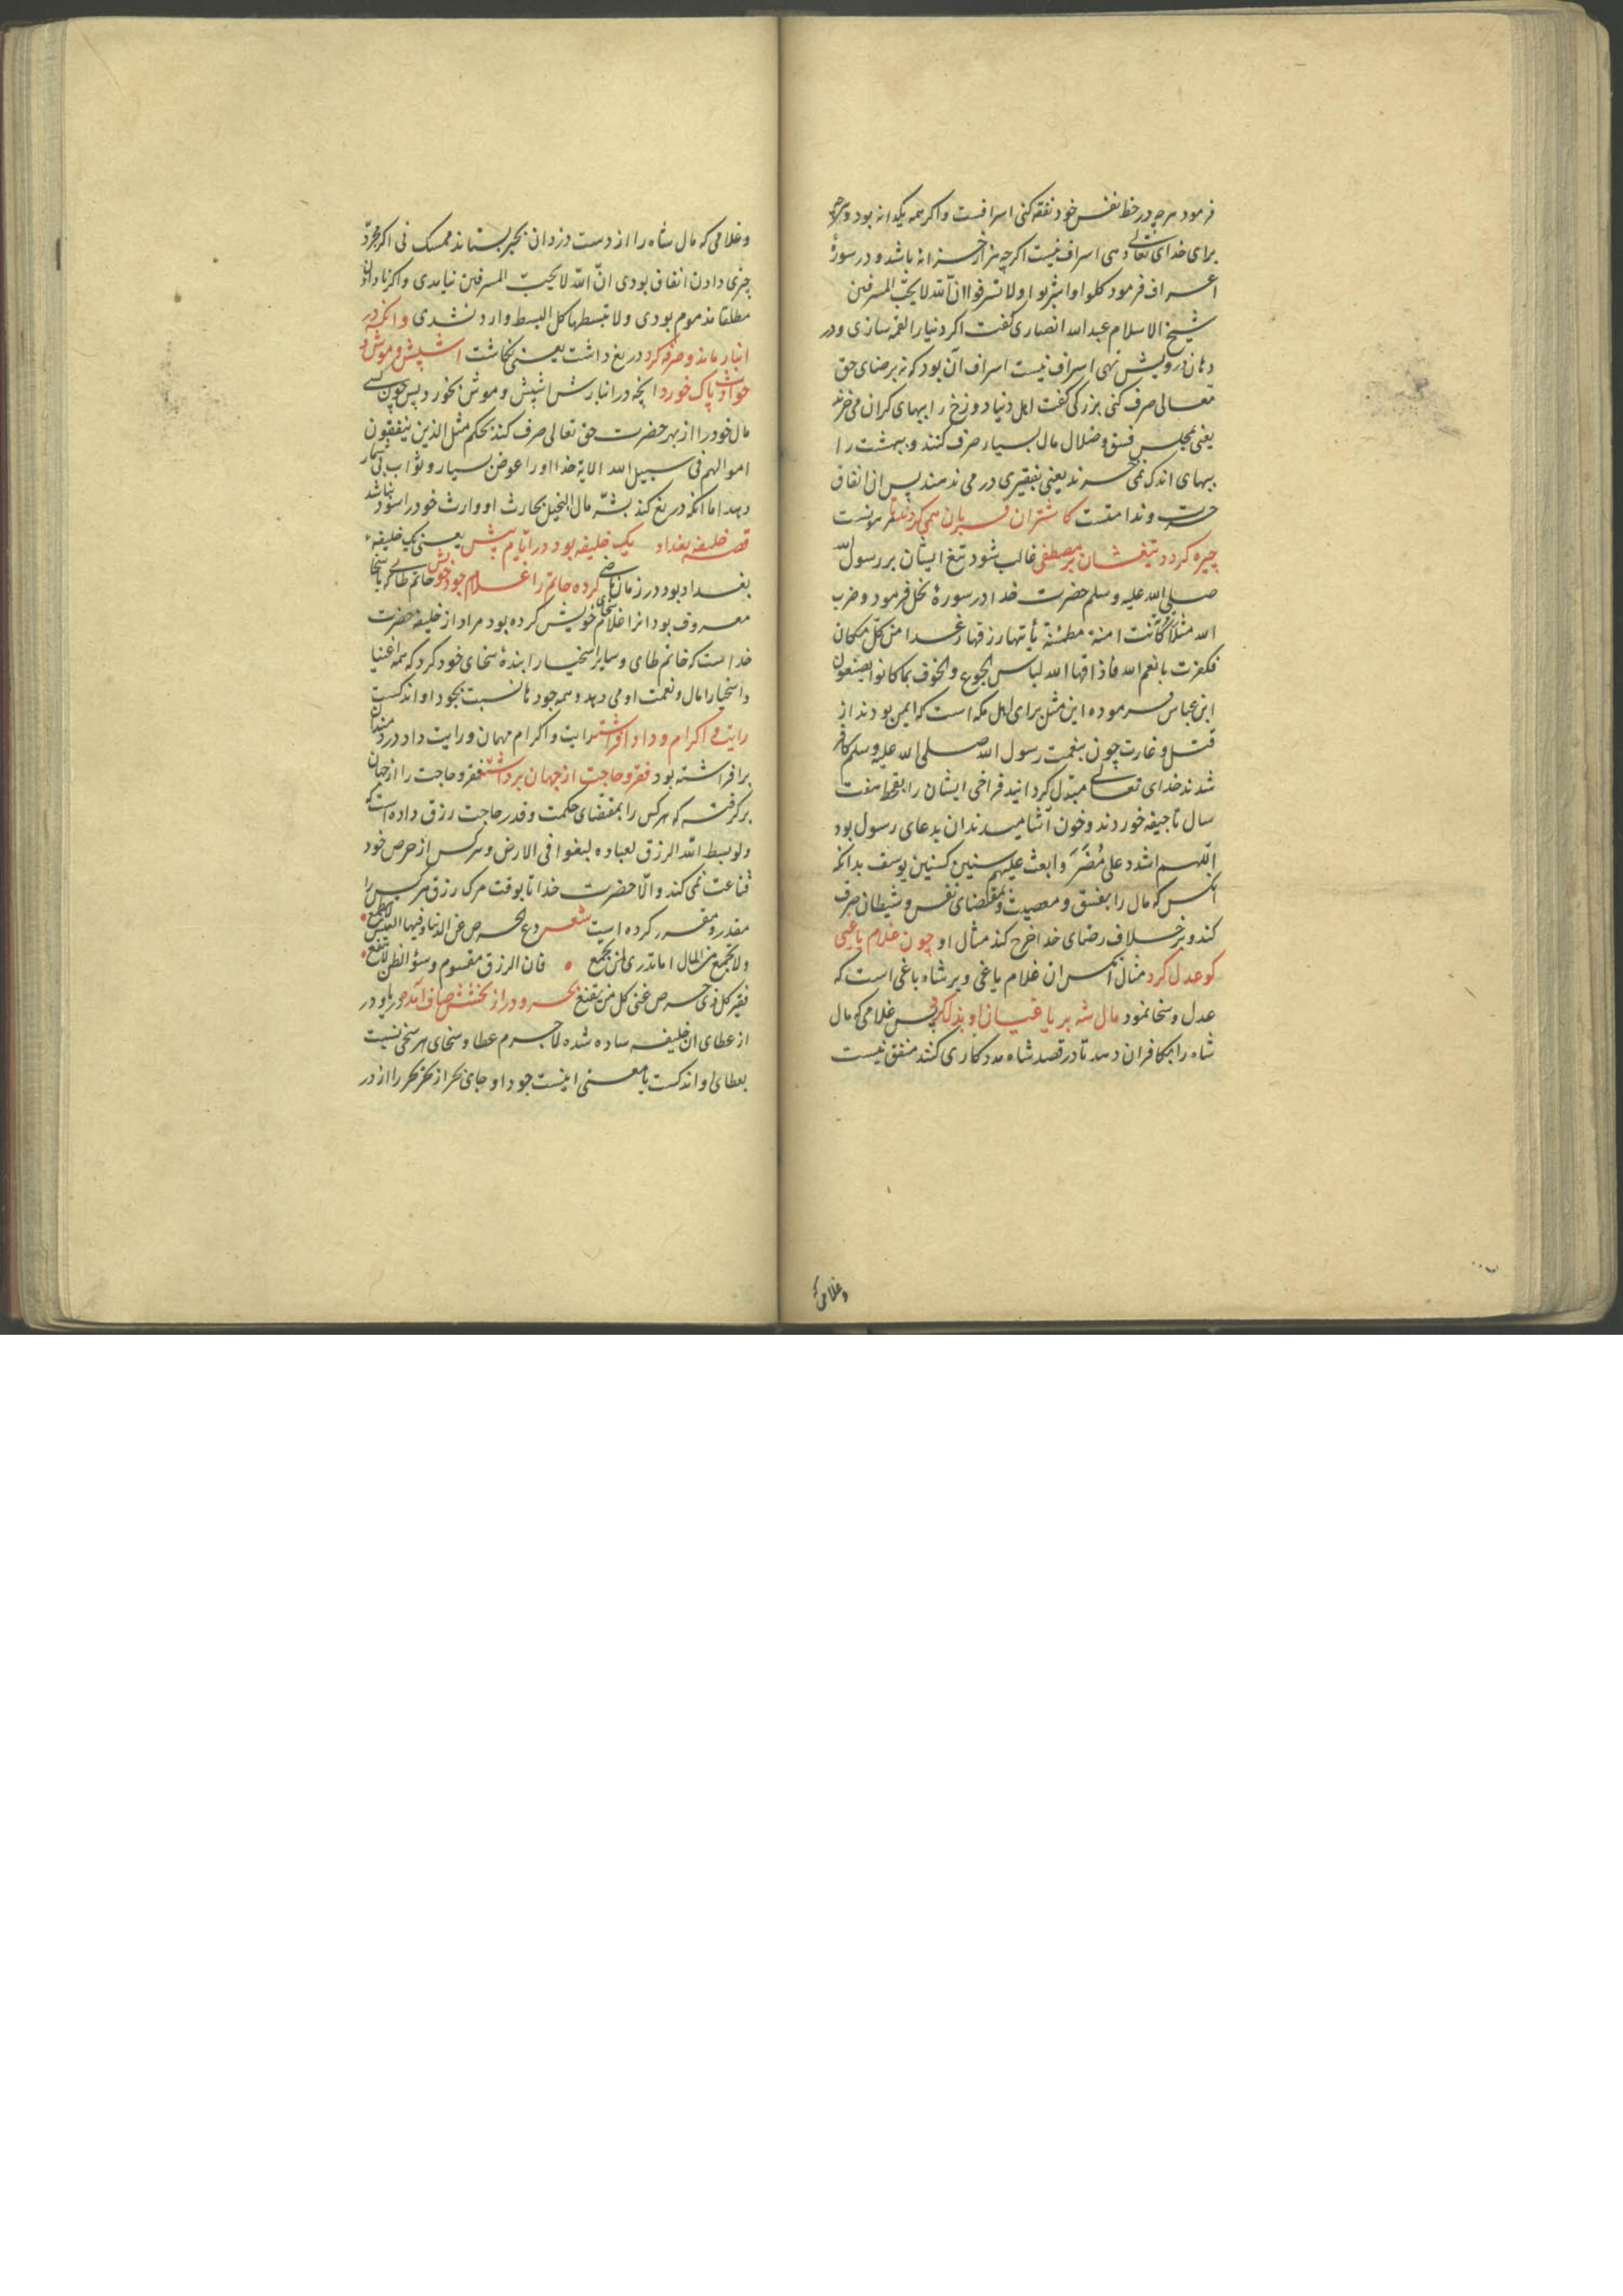 فرمود هرچه در حظ نفس خود نفقه کنی اسرافست و اگر همه یکدانه بود و هرچه
برای خدای تعالی دهی اسراف نیست اگرچه هزار خزانه باشد و در سورهٔ
اعراف فرمود کلوا واشربوا ولا تسرفوا انّ الله لا یحبّ المسرفین
شیخ الاسلام عبدالله انصاری گفت اگر دنیا را لقمه سازی و در
دهان درویش نهی اسراف نیست اسراف آن بود که نه برضای حق
تعالی صرف کنی بزرگی گفت اهل دنیا دوزخ را ببهای گران می‌خرند
یعنی بمجلس فسق و ضلال مال بسیار صرف کنند و بهشت را
ببهای اندک نمی‌خرند یعنی بفقیری درمی ندهند پس ان انفاق
حسرت و ندامتست کاشتران قربان همی کردند تا
چیره گردد تیغشان بر مصطفی غالب شود تیغ ایشان بر رسول الله
صلی الله علیه و سلم حضرت خدا در سورهٔ نحل فرمود و ضرب
الله مثلاً کانت امنة مطمئنة یأتیها رزقها رغدا من کلّ مکان
فکفرت بانعم الله فاذاقها الله لباس الجوع والخوف بما کانوا یصنعون
ابن عباس فرموده این مثل برای اهل مکه است که ایمن بودند از
قتل و غارت چون بنعمت رسول الله صلی الله علیه وسلم کافر
شدند خدای تعالی مبتدل گردانید فراخی ایشان را بقحط هفت
سال تا جیفه خوردند و خون آشامیدند ان بدعای رسول بود
اللّهم اشدد علی مُضَر وابعث علیهم سنین کسنین یوسف بدانکه
آنکس که مال را بفسق و معصیت و بمقتضای نفس و شیطان صرف
کند و برخلاف رضای خدا خرج کند مثال او چون غلام یاغیی
کو عدل کرد مثال آنکس ان غلام یاغی و بر شاه باغی است که
عدل و سخا نمود مال شه بر یاغیان او بذل کرد پس غلامی که مال
شاه را بکافران دهد تا در قصد شاه مددکاری کنند منفق نیست
و غلامی که
و غلامی که مال شاه را از دست دزدان بجبر بستاند ممسک نی اگر مجرّد
چیزی دادن انفاق بودی انّ الله لا یحبّ المسرفین نیامدی و اگر نادادن
مطلقا مذموم بودی ولا تبسطها کل البسط وارد نشدی وانکه در
انبار ماند و صرفه کرد دریغ داشت یعنی نکاشت اشپش و موش و
حوادث پاک خورد انچه در انبارش اشپش و موش بخورد پس چون کسی
مال خود را از بهر حضرت حق تعالی صرف کند بحکم مثل الذین ینفقون
اموالهم فی سبیل الله الایة خدا او را عوض بسیار و ثواب بیشمار
دهد اما انکه دریغ کند بشّر مال البخیل بحارث او وارث خود را سود نباشد
قصه خلیفه بغداد یک خلیفه بود در ایام پیش یعنی یک خلیفهٔ
بغداد بود در زمان ماضی کرده حاتم را غلام جود خویش حاتم طائی که با سخا
معروف بود انرا غلام سخای خویش کرده بود مراد از خلیفه حضرت
خداست که حاتم طای و سایر اسخیا را بندهٔ سخای خود کرد که همه اغنیا
و اسخیا را مال و نعمت او می دهد و همه جودها نسبت بجود او اندکست
رایت اکرام و داد افراشته رایت و اکرام مهمان و رایت داد دردمندان
برافراشته بود فقر و حاجت از جهان برداشته فقر و حاجت را از جهان
برگرفته که هر کس را بمقتضای حکمت و قدر حاجت رزق داده است که
ولو بسط الله الرزق لعباده لبغوا فی الارض و هر کس از حرص خود
قناعت نمی کند والّا حضرت خدا تا بوقت مرک رزق هر کس را
مقدر و مقرر کرده است شعر دع الحرص عن الدنیا وفیها العیش لا تطمع
ولا تجمع من المال اما تدری لمن تجمع • فان الرزق مقسوم وسوء الظن لا ینفع
فقیر کل ذی حرص غنی کل من یقنع بحر و در از بخشش صاف آمده دریا و در
از عطای ان خلیفه ساده شده لاجرم عطا و سخای هر سخی نسبت
بعطای او اندکست یا معنی اینست جود او جای بحر از بحر بحر را از در